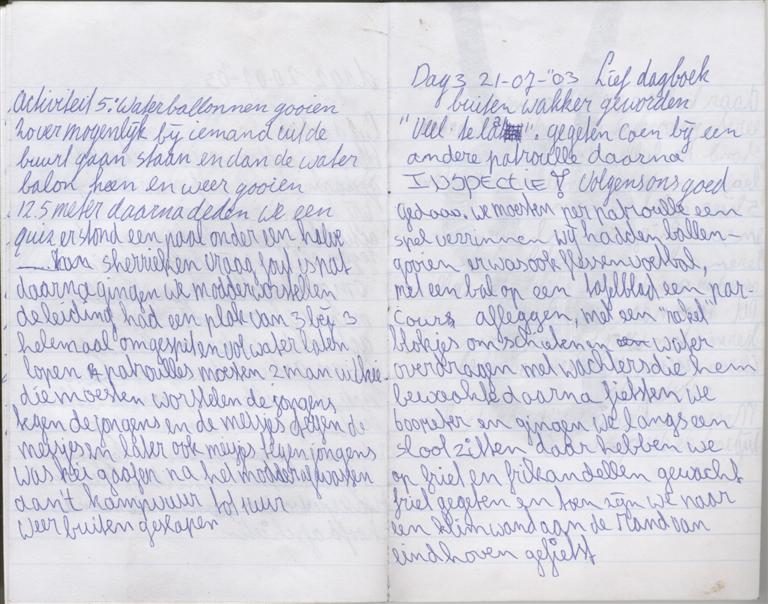 Activiteit 5: Waterballonnen gooien
zover mogenlijk bij iemand uit de
buurt gaan staan en dan de water
balon heen en weer gooien
12.5 meter daarna deden we een
quiz er stond een paal onder een halve
sherrieken vraag fout is nat
daarna gingen we modderworstelen
de leiding had een plak van 3 bij 3
helemaal omgespiten vol water laten
lopen patrouilles moesten 2 man uitkie
die moesten worstelen de jongens
tegen de jongens en de meisjes tegen de
meisjes en later ook meisjes tegen jongens
was na het modder gewassen
aan't kampvuur tot 1 uur
weer buiten geslapen
Dag 3 21-07-'03 Lief dagboek
buiten wakker geworden
"Veel te laat". gegeten Coen bij een
andere patrouille daarna
INSPECTIE volgens ons goed
gedaan. we moesten per patrouille een
spel verzinnen wij hadden ballen-
gooien er was ook flessenvoetbal,
met een bal op een tafelblad een par
cours afleggen, met een
blokjes omschieten water
overdragen met wachters die hem
bewaakte daarna fietsten we
en gingen we langs een
sloot zitten daar hebben we
op friet en frikandellen gewacht
friet gegeten en toen zijn we naar
een klimwand aan de rand van
eindhoven gefietst